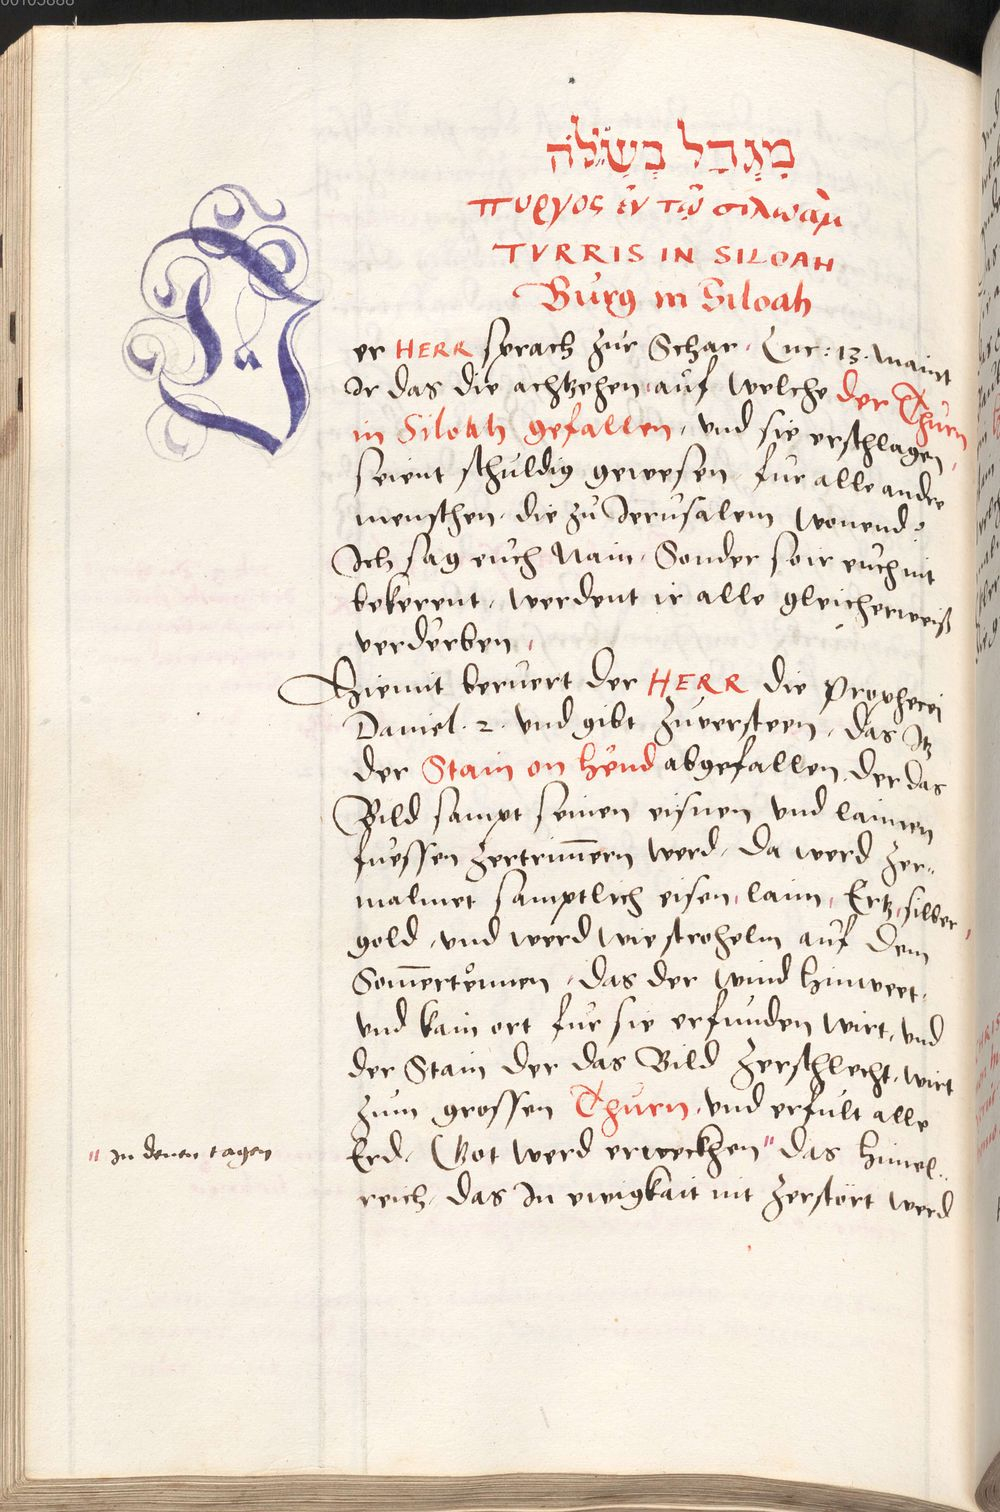 00105888
מִגְדַל בְּשִׁלֹה
πυργος ἐν τῷ σιλωὰμ
TVRRIS IN SILOAH
Burg in Siloah
Der HERR sprach zur Schar. Luc: 13. Maint
Ir das die achtzehen auf welche der Thurn
in Siloah gefallen, und sie erschlagen,
seient schuldig gewesen fur alle andre
menschen. die zu Jerusalem wonend?
Ich sag euch Nain. Sonder so ir euch nit
bekerent, werdent ir alle gleicherweiß
verderben.
Hiemit beruert der HERR die Prophecei
Daniel. 2. und gibt zuversteen, das Itz
der Stain on hend abgefallen, der das
Bild sampt seinen eisnen und laimen
fuessen zertrim̄ern werd, da werd zer-
malmet samptlich eisen, laim, Ertz, silber,
gold, und werd wie strohelm auf dem
Som̄ertennen, das der wind hinweet,
und kain ort fur sie erfunden wirt, und
der Stain der das Bild zerschlecht, wirt
zum grossen Thurn, und erfult alle
Erd. Got werd erweckhen" das himel-
reich, das In ewigkait nit zerstört werd
" In denen tagen